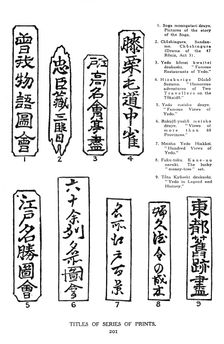 1. Soga monogatari dzuye.
Pictures of the story
of the Soga.
2. Chûshingura, Sandan-
me. Chûshingura
(Drama of the 47
Rônin, Act 3).
3. Yedo kômei kwaitei
dzukushi. "Famous
Restaurants of Yedo."
"Humorous
adventures of Two
Travellers on the
Tôkaidô."
5. Yedo meisho dzuye.
"Famous Views of
Yedo."
dzuye. "Views of
more than 60
Provinces."
7. Meisho Yedo Hiakkei.
"Hundred Views of
Yedo."
"The lucky
"money-tree" set.
9. Tôto Kyûseki dzukushi.
"Yedo in Legend and
History."
曽我物語圖會
1
忠臣蔵三段目
2
江戸高名會亭盡
3
膝栗毛道中雀
4
江戸名勝圖會
5
六十余州名所圖会
6
名所江戸百景
7
8
東都舊跡盡
9
TITLES OF SERIES OF PRINTS.
201